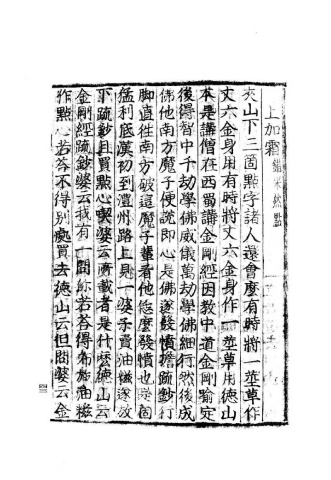 上加霜
夾山下三箇點字諸人還會麼有時將一莖草作
丈六金身用有時將丈六金身作一莖草用德山
本是講僧在西蜀講金剛經因教中道金剛喻定
後得智中千劫學佛威儀萬劫學佛細行然後成
佛他南方魔子便說即心是佛遂發憤擔疏鈔行
脚直往南方破這魔子輩看他恁麼發憤也是箇
猛利底漢初到澧州路上見一婆子賣油糍遂放
下疏鈔且買點心喫婆云所載者是什麼德山云
金剛經疏鈔婆云我有一問你若答得布施油糍
作點心若答不得別處買去德山云但問婆云金